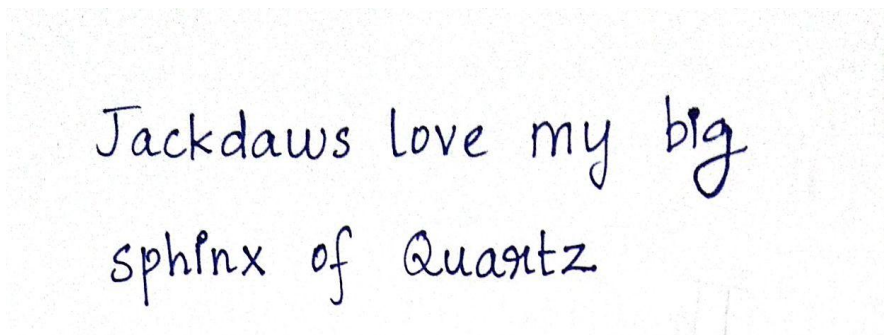 Jackdaws love my big
sphinx of Quartz